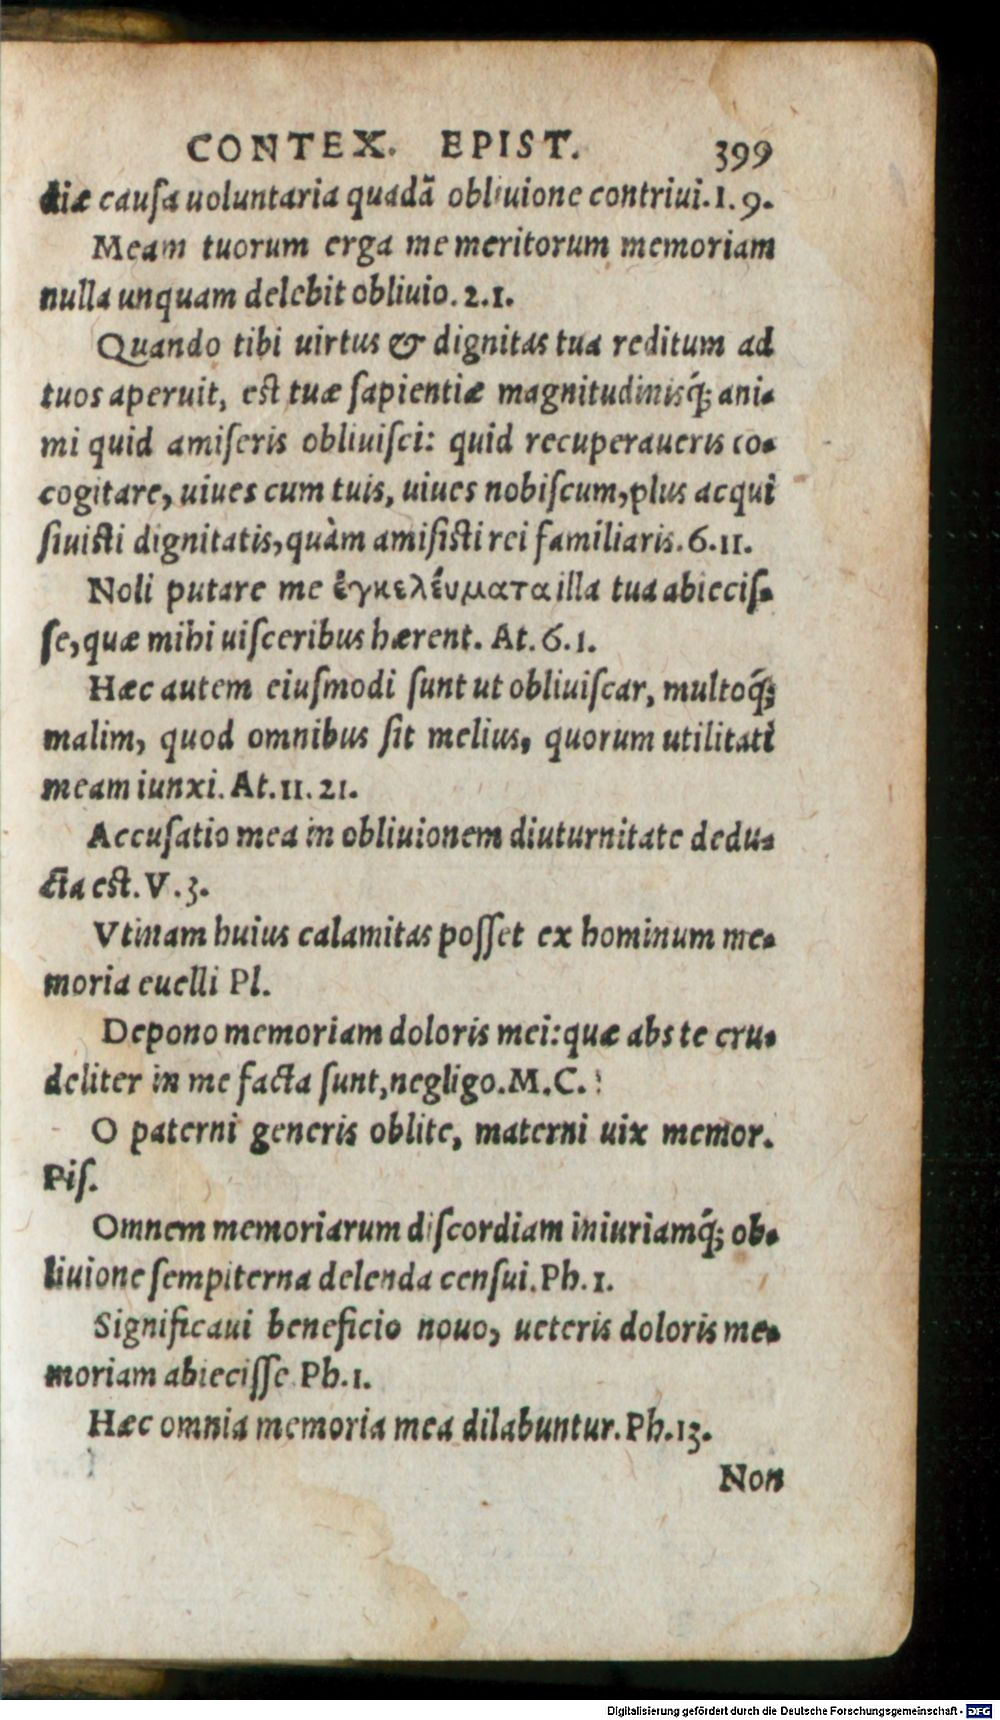 CONTEX. EPIST. 399
diæ causa uoluntaria quadã obliuione contriui. 1. 9.
Meam tuorum erga me meritorum memoriam
nulla unquam delebit obliuio. 2. 1.
Quando tibi uirtus & dignitas tua reditum ad
tuos aperuit, est tuæ sapientiæ magnitudinisq́; ani-
mi quid amiseris obliuisci: quid recuperaueris co-
cogitare, uiues cum tuis, uiues nobiscum, plus acqui
siuisti dignitatis, quàm amisisti rei familiaris. 6. 11.
Noli putare me ἐγκελέυματα illa tua abiecis-
se, quæ mihi uisceribus hærent. At. 6. 1.
Hæc autem eiusmodi sunt ut obliuiscar, multoq́;
malim, quod omnibus sit melius, quorum utilitati
meam iunxi. At. 11. 21.
Accusatio mea in obliuionem diuturnitate dedu-
cta est. V. 3.
Vtinam huius calamitas posset ex hominum me-
moria euelli Pl.
Depono memoriam doloris mei: quæ abs te cru-
deliter in me facta sunt, negligo. M. C.
O paterni generis oblite, materni uix memor.
Pis.
Omnem memoriarum discordiam iniuriamq́; ob-
liuione sempiterna delenda censui. Ph. 1.
Significaui beneficio nouo, ueteris doloris me-
moriam abiecisse Ph. 1.
Hæc omnia memoria mea dilabuntur. Ph. 13.
Non
Digitalisierung gefördert durch die Deutsche Forschungsgemeinschaft - DFG